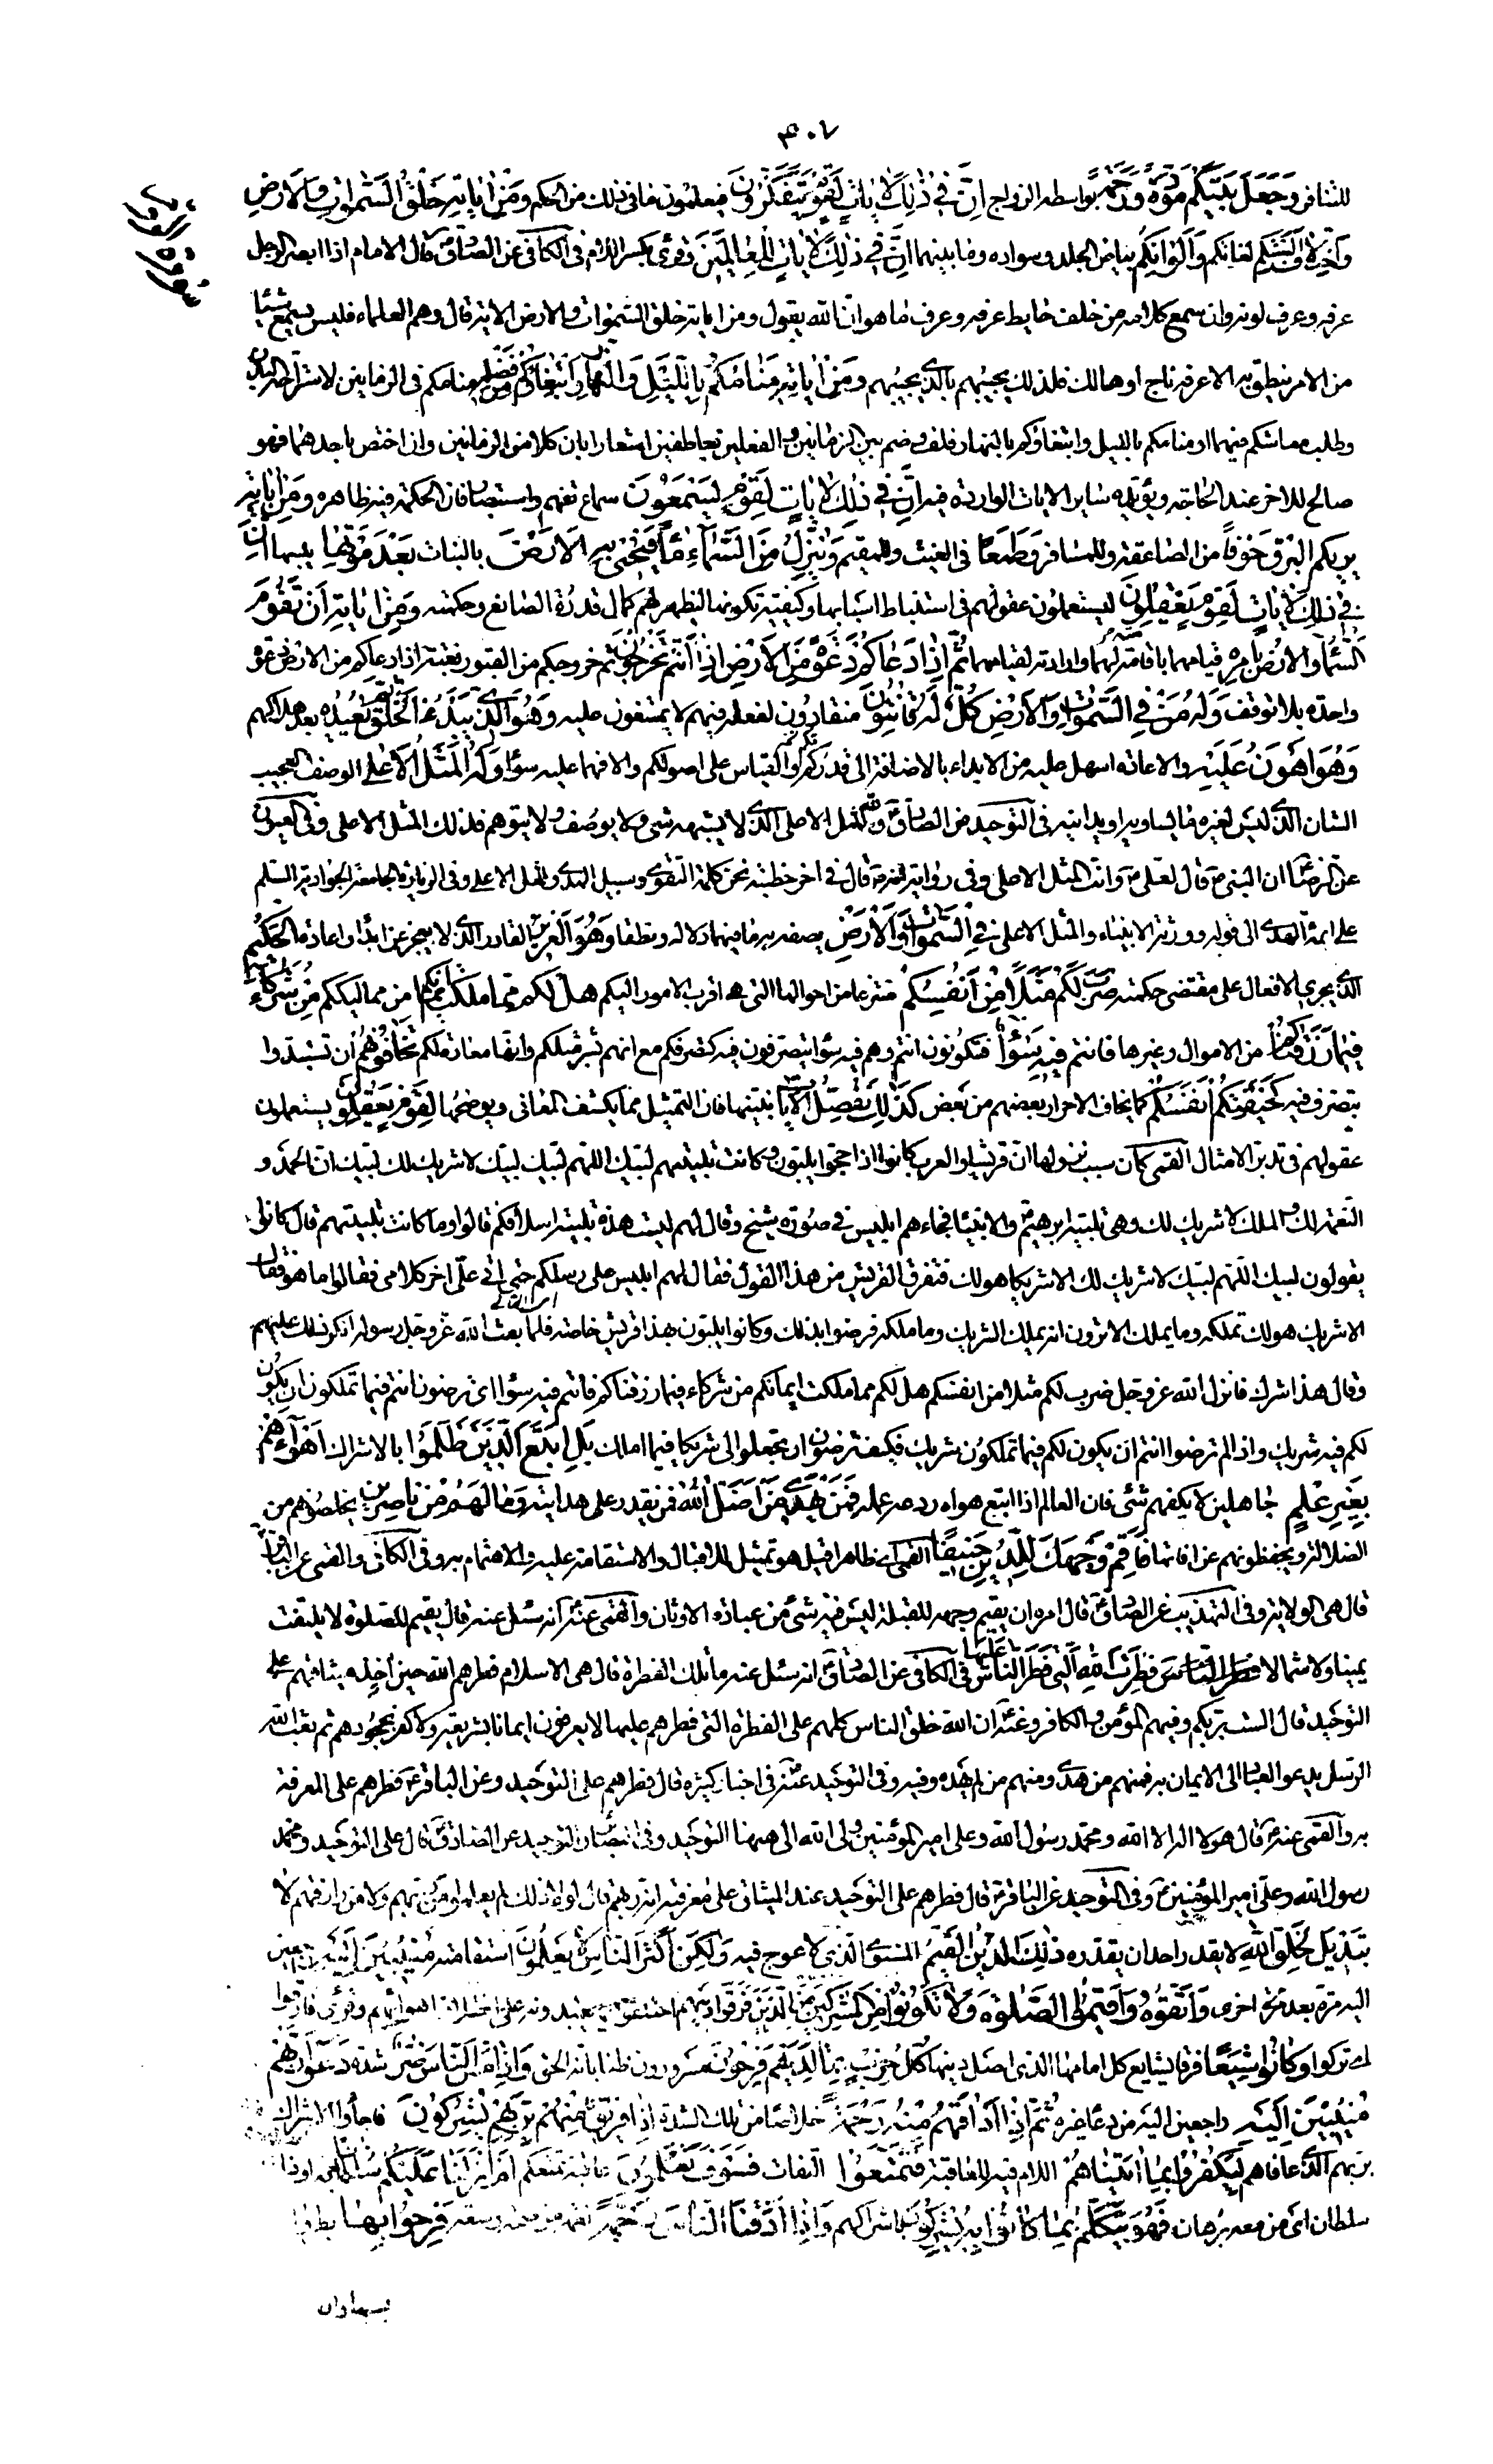 ٤٠٧
سورة الروم
للتنافر وَجَعَلَ بَيْنَكُمْ مَوَدَّةً وَرَحْمَةً بواسطة الزواج اِنَّ فِي ذٰلِكَ لَاٰيَاتٍ لِقَوْمٍ يَتَفَكَّرُونَ فيعلمون ما في ذلك من الحكم وَمِنْ اٰيَاتِهِ خَلْقُ السَّمٰوَاتِ وَالْاَرْضِ
وَاخْتِلَافُ اَلْسِنَتِكُمْ لغاتكم وَاَلْوَانِكُمْ بياض الجلد وسواده وما بينهما اِنَّ فِي ذٰلِكَ لَاٰيَاتٍ لِلْعَالِمِينَ وقرئ بكسر اللام في الكافي عن الصادق ع قال الامام اذا ابصر الرجل
عرفه وعرف لونه وان سمع كلامه من خلف حايط عرفه وعرف ما هو ان الله يقول ومن اياته خلق السموات والارض الاية قال وهم العلماء فليس يسمع شيئا
من الامر ينطق به الا عرفه ناج او هالك فلذلك يجيبهم بالذي يجيبهم وَمِنْ اٰيَاتِهِ مَنَامُكُمْ بِاللَّيْلِ وَالنَّهَارِ وَابْتِغَاؤُكُمْ مِنْ فَضْلِهِ منامكم في الزمانين لاستراحة البدن
وطلب معاشكم فيهما او منامكم بالليل وابتغاؤكم بالنهار فلف وضم بين الزمانين والفعلين بعاطفين اشعارا بان كلا من الزمانين وان اختص باحدهما فهو
صالح للاخر عند الحاجة ويؤيده ساير الايات الواردة فيه اِنَّ فِي ذٰلِكَ لَاٰيَاتٍ لِقَوْمٍ يَسْمَعُونَ سماع تفهم واستبصار فان الحكمة فيه ظاهره وَمِنْ اٰيَاتِهِ
يُرِيكُمُ الْبَرْقَ خَوْفًا من الصاعقة وللمسافر وَطَمَعًا في الغيث وللمقيم وَيُنَزِّلُ مِنَ السَّمَاءِ مَاءً فَيُحْيِي بِهِ الْاَرْضَ بالنبات بَعْدَ مَوْتِهَا يبسها اِنَّ
فِي ذٰلِكَ لَاٰيَاتٍ لِقَوْمٍ يَعْقِلُونَ يستعملون عقولهم في استنباط اسبابها وكيفية تكونها ليظهر لهم كمال قدرة الصانع وحكمته وَمِنْ اٰيَاتِهِ اَنْ تَقُومَ
السَّمَاءُ وَالْاَرْضُ بِاَمْرِهِ قيامهما باقامته لهما وارادته لقيامهما ثُمَّ اِذَا دَعَاكُمْ دَعْوَةً مِنَ الْاَرْضِ اِذَا اَنْتُمْ تَخْرُجُونَ ثم خروجكم من القبور بغتة اذا دعاكم من الارض دعوة
واحدة بلا توقف وَلَهُ مَنْ فِي السَّمٰوَاتِ وَالْاَرْضِ كُلٌّ لَهُ قَانِتُونَ منقادون لفعله فيهم لا يمتنعون عليه وَهُوَ الَّذِي يَبْدَؤُ الْخَلْقَ ثُمَّ يُعِيدُهُ بعد هلاكهم
وَهُوَ اَهْوَنُ عَلَيْهِ والاعادة اسهل عليه من الابداء بالاضافة الى قدركم والقياس على اصولكم والا فهما عليه سواء وَلَهُ الْمَثَلُ الْاَعْلٰى الوصف العجيب
الشان الذي ليس لغيره ما يساويه او يدانيه في التوحيد عن الصادق ع ولله المثل الاعلى الذي لا يشبهه شئ ولا يوصف ولا يتوهم فذلك المثل الاعلى وفي العيون
عن الرضا ع ان النبي ص قال لعلي ع وانت المثل الاعلى وفي رواية اخرى قال في اخر خطبته نحن كلمة التقوى وسبيل الهدى والمثل الاعلى وفي الزيارة الجامعة الجوادية السلم
على ائمة الهدى الى قوله وورثة الانبياء والمثل الاعلى فِي السَّمٰوَاتِ وَالْاَرْضِ يصفه به ما فيهما دلالة ونطقا وَهُوَ الْعَزِيزُ القادر الذي لا يعجز عن ابداء واعادة الْحَكِيمُ
الذي يجري الافعال على مقتضى حكمته ضَرَبَ لَكُمْ مَثَلًا مِنْ اَنْفُسِكُمْ منتزعا من احوالها التي هي اقرب الامور اليكم هَلْ لَكُمْ مِمَّا مَلَكَتْ اَيْمَانُكُمْ من مماليككم مِنْ شُرَكَاءَ
فِيمَا رَزَقْنَاكُمْ من الاموال وغيرها فَاَنْتُمْ فِيهِ سَوَاءٌ فتكونون انتم وهم فيه سواء يتصرفون فيه كتصرفكم مع انهم بشر مثلكم وانها معارة لكم تَخَافُونَهُمْ ان تستبدوا
بتصرف فيه كَخِيفَتِكُمْ اَنْفُسَكُمْ كما يخاف الاحرار بعضهم من بعض كَذٰلِكَ نُفَصِّلُ الْاٰيَاتِ نبينها فان التمثيل مما يكشف المعاني ويوضحها لِقَوْمٍ يَعْقِلُونَ يستعملون
عقولهم في تدبر الامثال القمي كان سبب نزولها ان قريشا والعرب كانوا اذا حجوا يلبون وكانت تلبيتهم لبيك اللهم لبيك لبيك لا شريك لك لبيك ان الحمد و
النعمة لك والملك لا شريك لك وهي تلبية ابرهيم ع والانبياء فجاءهم ابليس في صورة شيخ وقال لهم ليست هذه تلبية اسلافكم قالوا وما كانت تلبيتهم قال كانوا
يقولون لبيك اللهم لبيك لا شريك لك الا شريكا هو لك فتفرق القريش من هذا القول فقال لهم ابليس على رسلكم حتى اتي على اخر كلامي فقالوا ما هو فقال
الا شريك هو لك تملكه وما يملك الا ترون انه يملك الشريك وما ملكه فرضوا بذلك وكانوا يلبون بهذا قريش خاصة فلما بعث الله عز وجل رسوله انكر ذلك عليهم
وقال هذا شرك فانزل الله عز وجل ضرب لكم مثلا من انفسكم هل لكم مما ملكت ايمانكم من شركاء فيما رزقناكم فانتم فيه سواء اي ترضون انتم فيما تملكون ان يكون
لكم فيه شريك واذا لم ترضوا انتم ان يكون لكم فيما تملكون شريك فكيف ترضون ان تجعلوا لي شريكا فيما املك بَلِ اتَّبَعَ الَّذِينَ ظَلَمُوا بالاشراك اَهْوَاءَهُمْ
بِغَيْرِ عِلْمٍ جاهلين لا يكفهم شئ فان العالم اذا اتبع هواه ردعه علمه فَمَنْ يَهْدِي مَنْ اَضَلَّ اللهُ فمن يقدر على هدايته وَمَا لَهُمْ مِنْ نَاصِرِينَ يخلصونهم من
الضلالة ويحفظونهم عن افاتها فَاَقِمْ وَجْهَكَ لِلدِّينِ حَنِيفًا القمي اي طاهرا قيل هو تمثيل للاقبال والاستقامة عليه والاهتمام به وفي الكافي والقمي عن الباقر ع
قال هي الولاية وفي التهذيب عن الصادق ع قال امره ان يقيم وجهه للقبلة ليس فيه شئ من عبادة الاوثان والقمي عنه ع انه سئل عنه قال يقيم للصلوة لا يلتفت
يمينا ولا شمالا فِطْرَتَ اللهِ الَّتِي فَطَرَ النَّاسَ عَلَيْهَا في الكافي عن الصادق ع انه سئل عنه ما تلك الفطرة قال هي الاسلام فطرهم الله حين اخذ ميثاقهم على
التوحيد قال الست بربكم وفيهم المؤمن والكافر وعنه ع ان الله خلق الناس كلهم على الفطرة التي فطرهم عليها لا يعرفون ايمانا بشريعة ولا كفرا بجحود ثم بعث الله
الرسل يدعو العباد الى الايمان به فمنهم من هدى ومنهم من لم يهده وفيه وفي التوحيد عنه ع في اخبار كثيرة قال فطرهم على التوحيد وعن الباقر ع فطرهم على المعرفة
به والقمي عنه ع قال هو لا اله الا الله ومحمد رسول الله وعلى امير المؤمنين ولي الله الى ههنا التوحيد وفي البصائر والتوحيد عن الصادق ع قال على التوحيد ومحمد
رسول الله وعلي امير المؤمنين ع وفي التوحيد عن الباقر ع قال فطرهم على التوحيد عند الميثاق على معرفته انه ربهم قال لولا ذلك لم يعلموا من ربهم ولا من رازقهم لَا
تَبْدِيلَ لِخَلْقِ اللهِ لا يقدر احد ان يغيره ذٰلِكَ الدِّينُ الْقَيِّمُ المستوي الذي لا عوج فيه وَلٰكِنَّ اَكْثَرَ النَّاسِ لَا يَعْلَمُونَ استقامته مُنِيبِينَ اِلَيْهِ راجعين
اليه مرة بعد اخرى وَاتَّقُوهُ وَاَقِيمُوا الصَّلٰوةَ وَلَا تَكُونُوا مِنَ الْمُشْرِكِينَ مِنَ الَّذِينَ فَرَّقُوا دِينَهُمْ اختلفوا فيما يعبدونه على اختلاف اهوائهم وقرئ فارقوا
اي تركوا وَكَانُوا شِيَعًا فرقا يشايع كل امامها الذي اضل دينها كُلُّ حِزْبٍ بِمَا لَدَيْهِمْ فَرِحُونَ مسرورون ظنا بانه الحق وَاِذَا مَسَّ النَّاسَ ضُرٌّ شدة دَعَوْا رَبَّهُمْ
مُنِيبِينَ اِلَيْهِ راجعين اليه من دعاء غيره ثُمَّ اِذَا اَذَاقَهُمْ مِنْهُ رَحْمَةً خلاصا من تلك الشدة اِذَا فَرِيقٌ مِنْهُمْ بِرَبِّهِمْ يُشْرِكُونَ فاجأوا الاشراك
بربهم الذي عافاهم لِيَكْفُرُوا بِمَا اٰتَيْنَاهُمْ اللام فيه للعاقبة فَتَمَتَّعُوا التفات فَسَوْفَ تَعْلَمُونَ عاقبة تمتعكم اَمْ اَنْزَلْنَا عَلَيْهِمْ سُلْطَانًا حجة او ذا
سلطان اي من معه برهان فَهُوَ يَتَكَلَّمُ بِمَا كَانُوا بِهِ يُشْرِكُونَ باشراكهم وَاِذَا اَذَقْنَا النَّاسَ رَحْمَةً نعمة من صحة وسعة فَرِحُوا بِهَا بطروا
بسببها وان